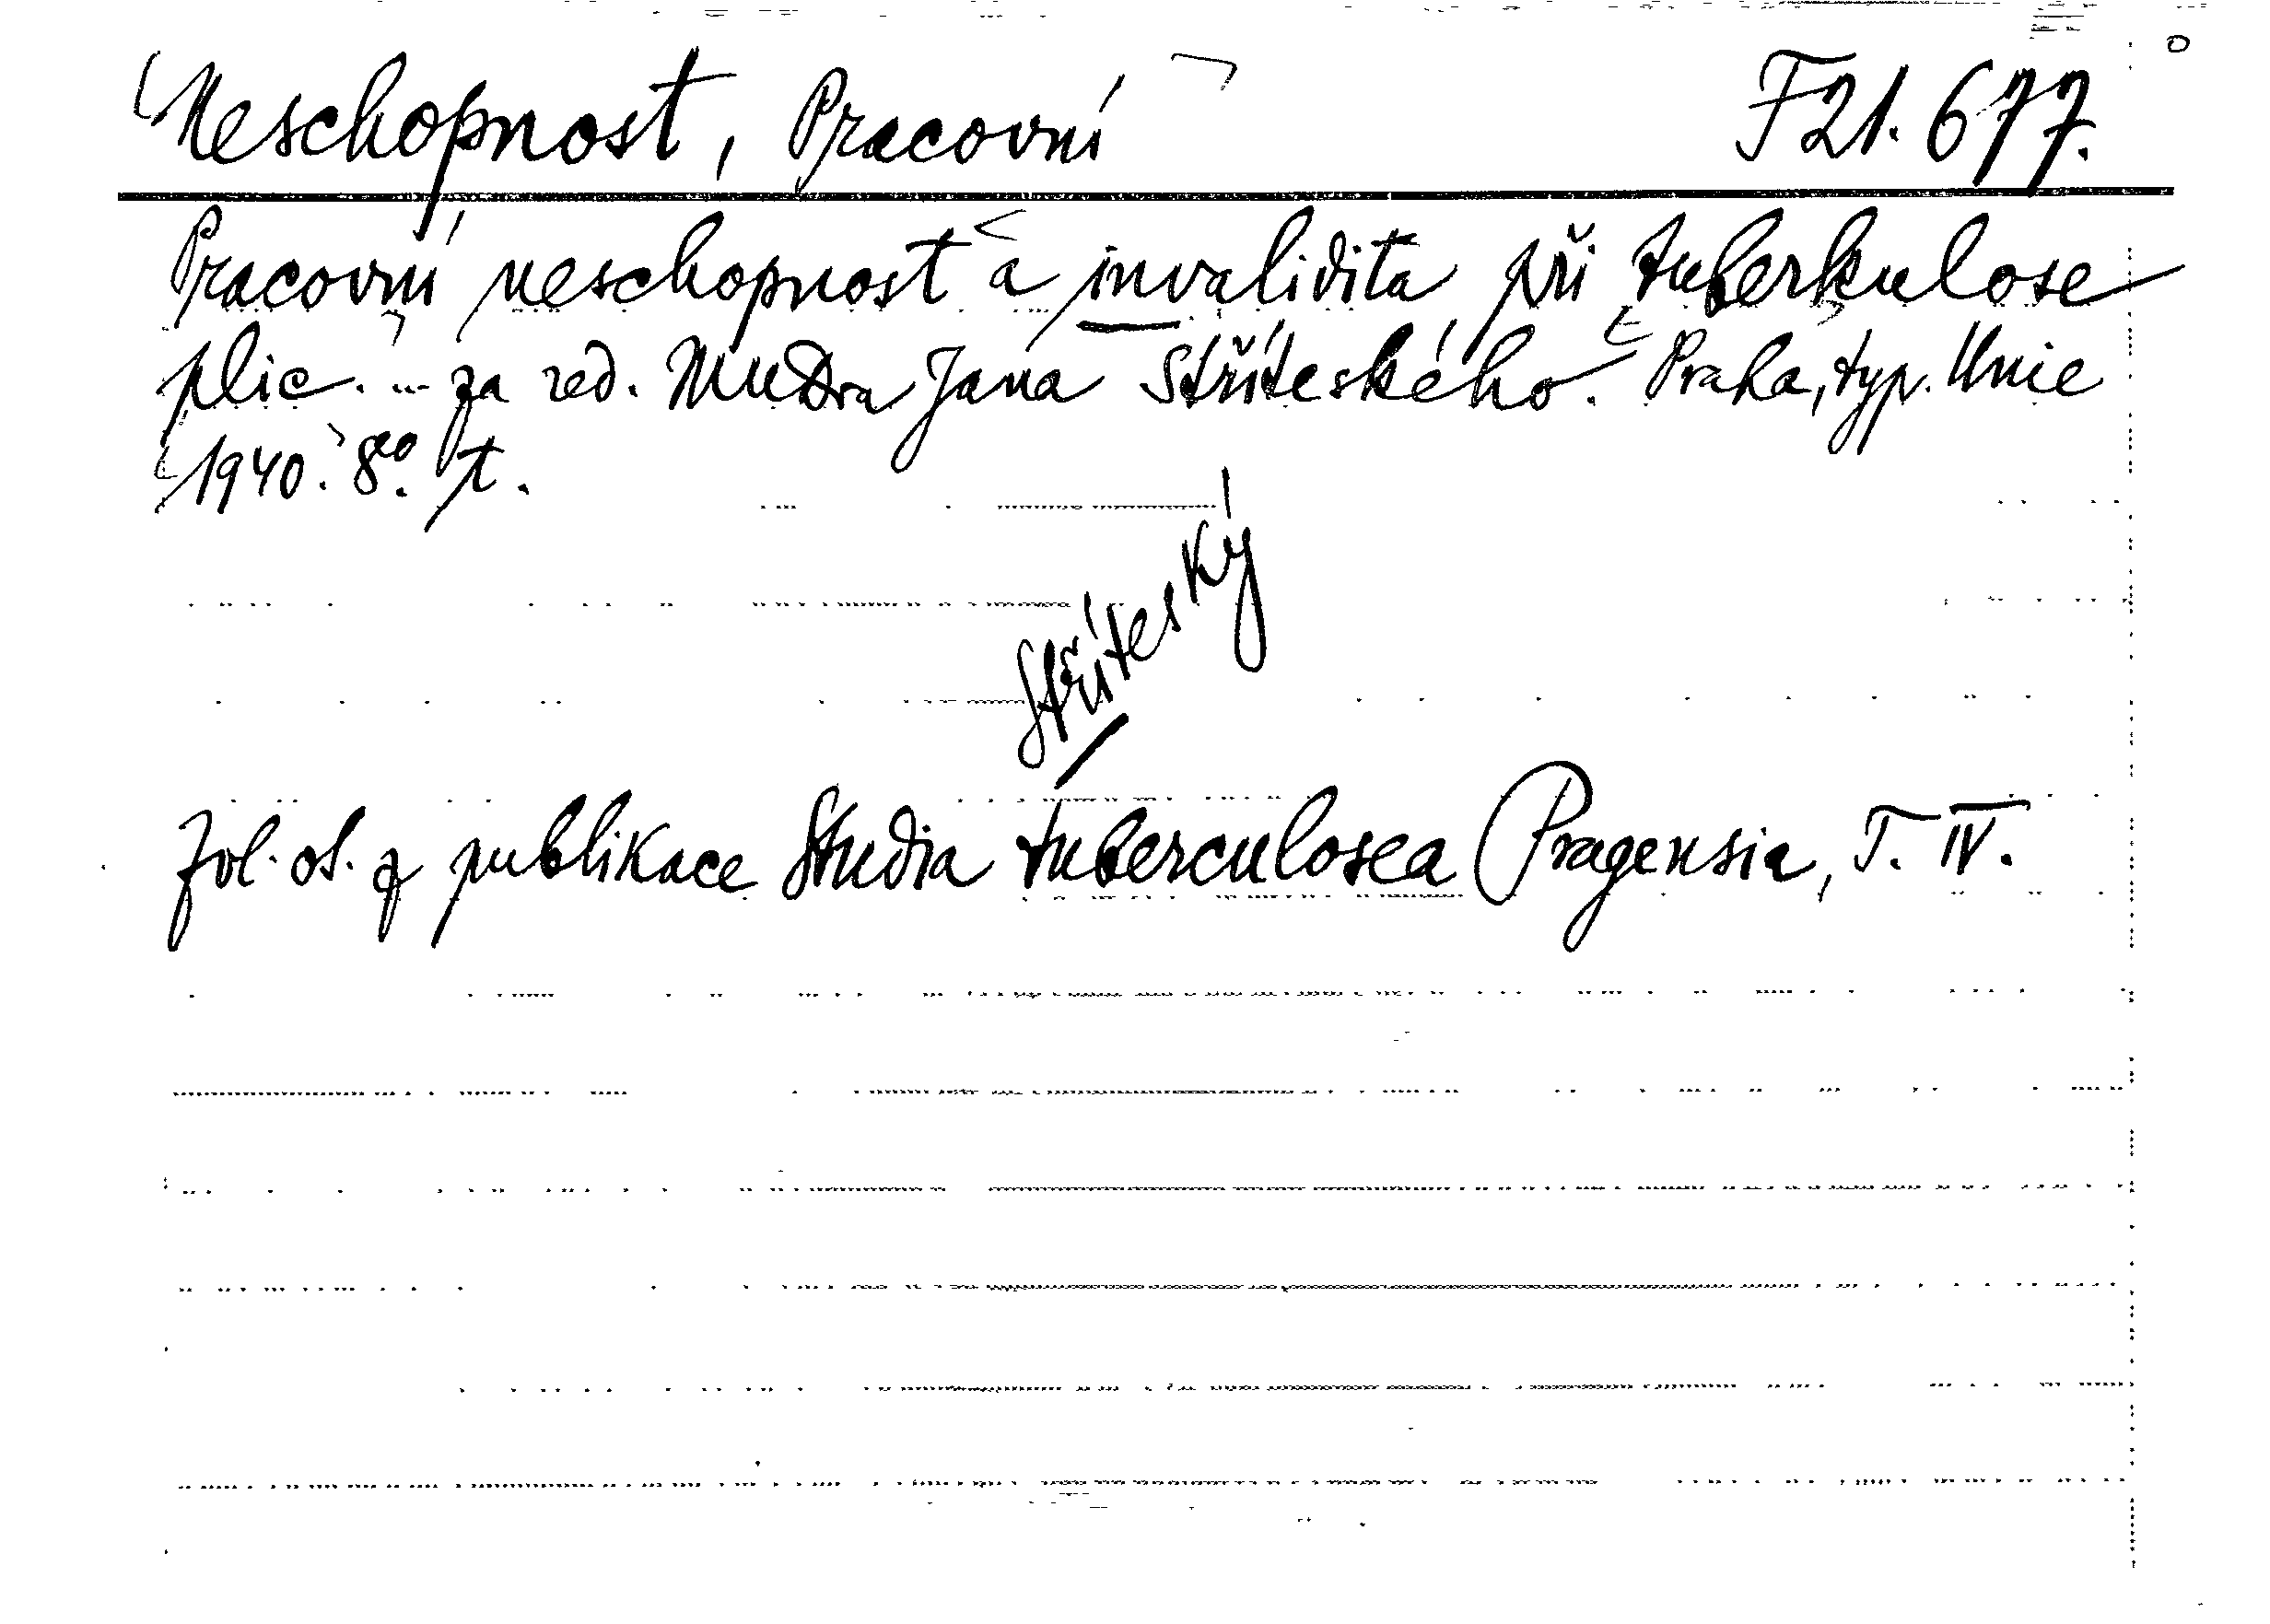 Neschopnost, Pracovní F21.677.
Pracovní neschopnost a invalidita při tuberkulose
plic. ... za red. MUDra Jana Stříteského. Praha, typ. Unie
1940. 8°. t.
Stříteský
Zvl. ot. z publikace Studia tuberculosea Pragensia, T. IV.